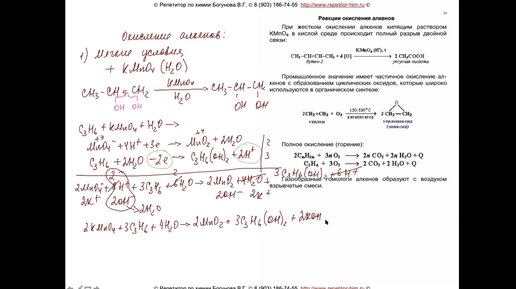 © Репетитор по химии Богунова В.Г. © 8 (903) 186-74-55 http://www.repetitor-him.ru ©
Окисление алкенов:
1) Мягкие условия
+ KMnO₄ (H₂O)
CH₃-CH=CH₂ KMnO₄ → H₂O CH₃-CH-CH₂
OH OH
OH OH
C₃H₆ + KMnO₄ + H₂O →
MnO₄⁻ + 4H⁺ + 3e → MnO₂ + 2H₂O | 2
C₃H₆ + 2H₂O - 2e → C₃H₆(OH)₂ + 2H⁺ | 3
2MnO₄⁻ + 8H⁺ + 3C₃H₆ + 6H₂O → 2MnO₂ + 4H₂O + 3C₃H₆(OH)₂ + 6H⁺
2K⁺ 2OH⁻ 2OH⁻ 2K⁺
2H₂O
2KMnO₄ + 3C₃H₆ + 4H₂O → 2MnO₂ + 3C₃H₆(OH)₂ + 2KOH
Реакции окисления алкенов
При жестком окислении алкенов кипящим раствором
KMnO₄ в кислой среде происходит полный разрыв двойной
связи:
CH₃-CH=CH-CH₃ + 4 [O] KMnO₄ (H⁺), t → 2 CH₃COOH
бутен-2 уксусная кислота
Промышленное значение имеет частичное окисление ал-
кенов с образованием циклических оксидов, которые широко
используются в органическом синтезе:
2CH₂=CH₂ + O₂ → 2 CH₂-CH₂
O
этилен
Полное окисление (горение):
2CₙH₂ₙ + 3n O₂ → 2n CO₂ + 2n H₂O + Q
C₂H₄ + 3O₂ → 2 CO₂ + 2 H₂O + Q
Газообразные гомологи алкенов образуют с воздухом
взрывчатые смеси.
© Репетитор по химии Богунова В.Г. © 8 (903) 186-74-55 http://www.repetitor-him.ru ©